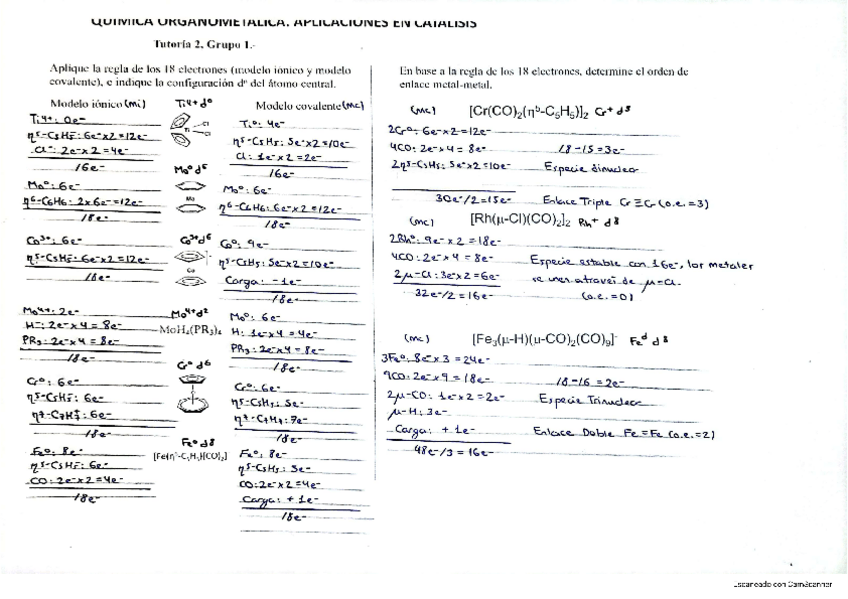 QUÍMICA ORGANOMETÁLICA. APLICACIONES EN CATÁLISIS
Tutoría 2, Grupo 1.-
Aplique la regla de los 18 electrones (modelo iónico y modelo
covalente), e indique la configuración dⁿ del átomo central.
Modelo iónico (mi)
Ti⁴⁺ d⁰
Modelo covalente (mc)
Ti⁴⁺: 0e⁻
η⁵-C5H5⁻: 6e⁻x2=12e⁻
Cl⁻: 2e⁻x2=4e⁻
16e⁻
Ti
Cl
Cl
Ti⁰: 4e⁻
η⁵-C5H5: 5e⁻x2=10e⁻
Cl: 1e⁻x2=2e⁻
16e⁻
Mo⁰ d⁶
Mo⁰: 6e⁻
η⁶-C6H6: 2x6e⁻=12e⁻
18e⁻
Mo
Mo⁰: 6e⁻
η⁶-C6H6: 6e⁻x2=12e⁻
18e⁻
Co³⁺ d⁶
Co³⁺: 6e⁻
η⁵-C5H5⁻: 6e⁻x2=12e⁻
18e⁻
Co
Co⁰: 9e⁻
η⁵-C5H5: 5e⁻x2=10e⁻
Carga: -1e⁻
18e⁻
Mo⁴⁺ d²
Mo⁴⁺: 2e⁻
H⁻: 2e⁻x4=8e⁻
PR3: 2e⁻x4=8e⁻
18e⁻
MoH4(PR3)4
Mo⁰: 6e⁻
H: 1e⁻x4=4e⁻
PR3: 2e⁻x4=8e⁻
18e⁻
Cr⁰ d⁶
Cr⁰: 6e⁻
η⁵-C5H5⁻: 6e⁻
η⁷-C7H7⁺: 6e⁻
18e⁻
Cr⁰: 6e⁻
η⁵-C5H5: 5e⁻
η⁷-C7H7: 7e⁻
18e⁻
Fe⁰ d⁸
[Fe(η⁵-C5H5)(CO)2]⁻
Fe⁰: 8e⁻
η⁵-C5H5⁻: 6e⁻
CO: 2e⁻x2=4e⁻
18e⁻
Fe⁰: 8e⁻
η⁵-C5H5: 5e⁻
CO: 2e⁻x2=4e⁻
Carga: +1e⁻
18e⁻
En base a la regla de los 18 electrones, determine el orden de
enlace metal-metal.
(mc) [Cr(CO)2(η⁵-C5H5)]2 Cr⁺ d⁵
2Cr⁰: 6e⁻x2=12e⁻
4CO: 2e⁻x4=8e⁻ 18-15=3e⁻
2η⁵-C5H5: 5e⁻x2=10e⁻ Especie dinuclear
30e⁻/2=15e⁻ Enlace Triple Cr≡Cr (o.e.=3)
(mc) [Rh(μ-Cl)(CO)2]2 Rh⁺ d⁸
2Rh⁰: 9e⁻x2=18e⁻
4CO: 2e⁻x4=8e⁻ Especie estable con 16e⁻, los metales
2μ-Cl: 3e⁻x2=6e⁻ se unen a través de μ-Cl.
32e⁻/2=16e⁻ (o.e.=0)
(mc) [Fe3(μ-H)(μ-CO)2(CO)9]⁻ d⁸
3Fe⁰: 8e⁻x3=24e⁻
9CO: 2e⁻x9=18e⁻ 18-16=2e⁻
2μ-CO: 1e⁻x2=2e⁻ Especie Trinuclear
μ-H: 3e⁻
Carga: +1e⁻ Enlace Doble Fe=Fe (o.e.=2)
48e⁻/3=16e⁻
Escaneado con CamScanner